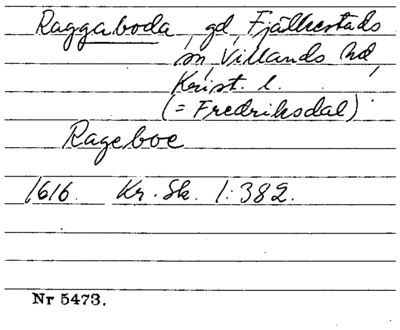 Raggaboda, gd, Fjälkestads
sn, Villands hd,
Krist. l.
(= Fredriksdal)
Rageboe
1616. Kr. Sk. 1:382.
Nr 5473.